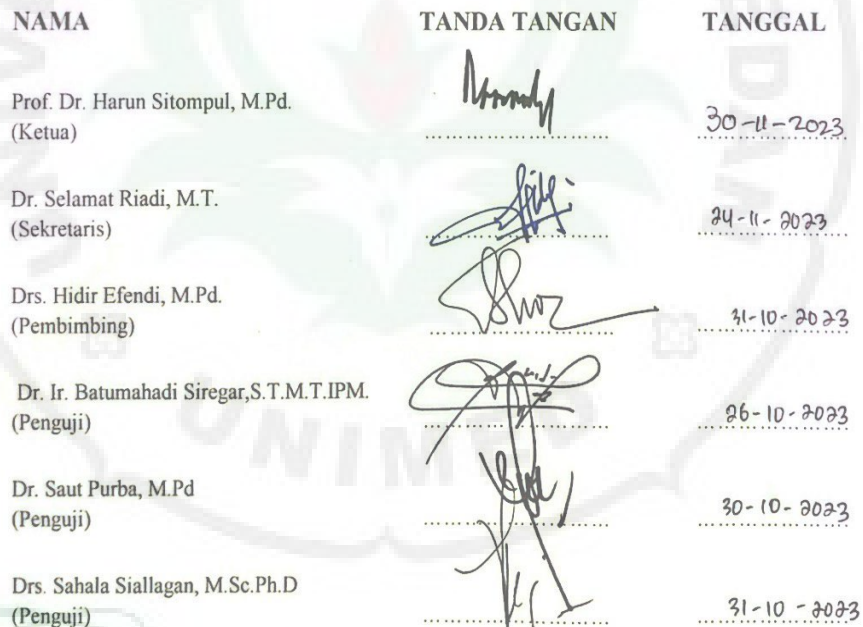 NAMA TANDA TANGAN TANGGAL
Prof. Dr. Harun Sitompul, M.Pd.
(Ketua) 30-11-2023
Dr. Selamat Riadi, M.T.
(Sekretaris) 24-11-2023
Drs. Hidir Efendi, M.Pd.
(Pembimbing) 31-10-2023
Dr. Ir. Batumahadi Siregar,S.T.M.T.IPM.
(Penguji) 26-10-2023
UNIMED
Dr. Saut Purba, M.Pd
(Penguji) 30-10-2023
Drs. Sahala Siallagan, M.Sc.Ph.D
(Penguji) 31-10-2023